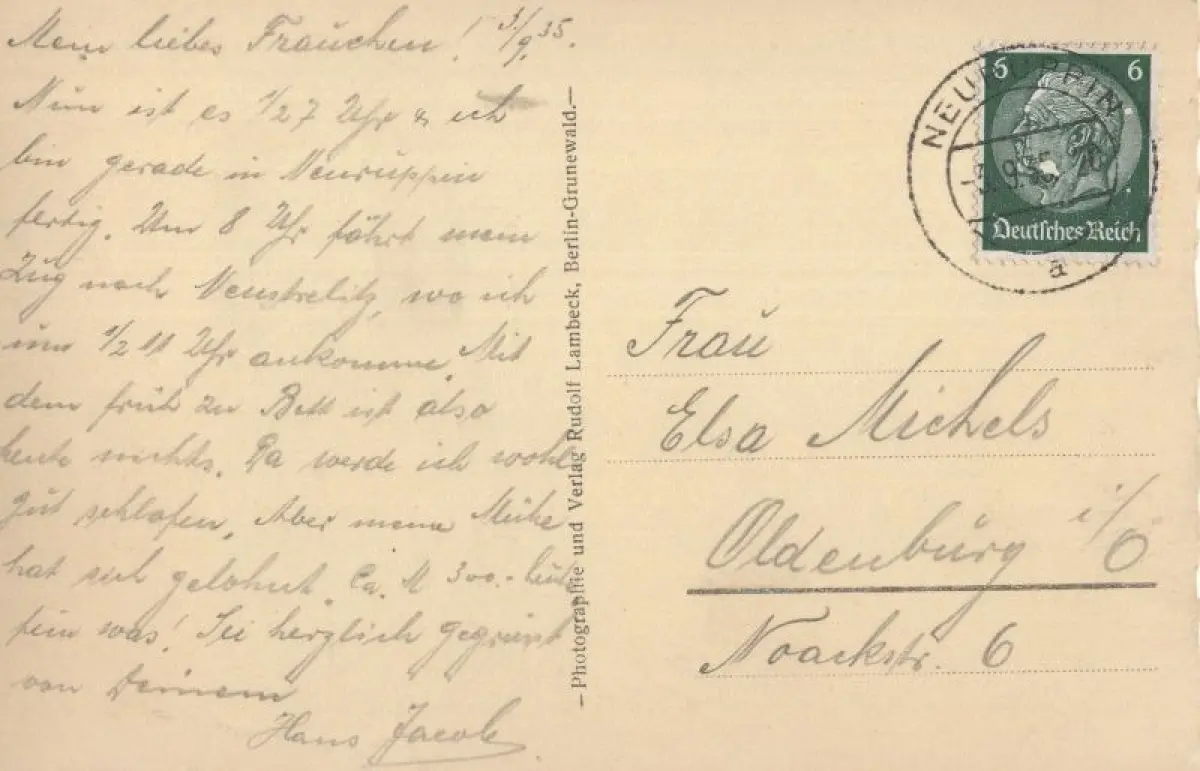 Mein liebes Frauchen! 3/9. 35.
Nun ist es 1/2 7 Uhr & ich
bin gerade in Neuruppin
fertig. Um 8 Uhr fährt mein
Zug nach Neustrelitz, wo ich
um 1/2 11 Uhr ankomme. Mit
dem früh zu Bett ist also
heute nichts. Da werde ich wohl
gut schlafen. Aber meine Mühe
hat sich gelohnt. Ca. M 300.- heute
fein was! Sei herzlich gegrüsst
von Deinem
Hans Jacob
—Photographie und Verlag Rudolf Lambeck, Berlin-Grunewald.—
NEURUPPIN
a
6 6
Deutsches Reich
Frau
Elsa Michels
Oldenburg i/O
Noackstr. 6